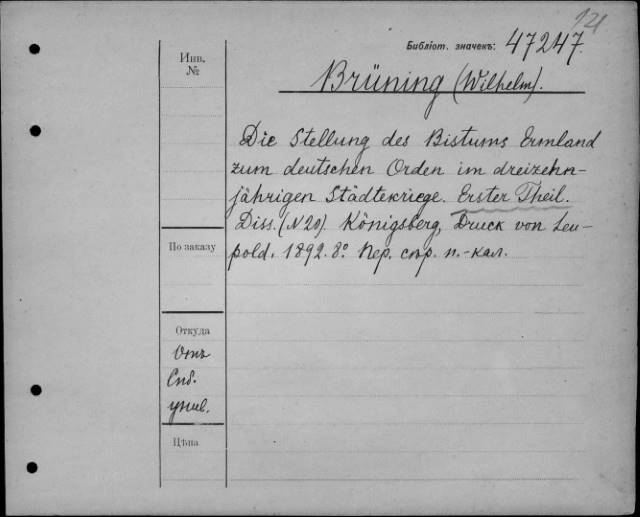 121
Библіот. значекъ: 47247.
Инв. №
Brüning (Wilhelm).
Die Stellung des Bistums Ermland
zum deutschen Orden im dreizehn-
jährigen Städtekriege. Erster Theil.
Diss. (N 20). Königsberg, Druck von Leu-
pold. 1892. 8º. Пер. стр. н.-кал.
По заказу
Откуда
Отъ
Спб.
унив.
Цѣна